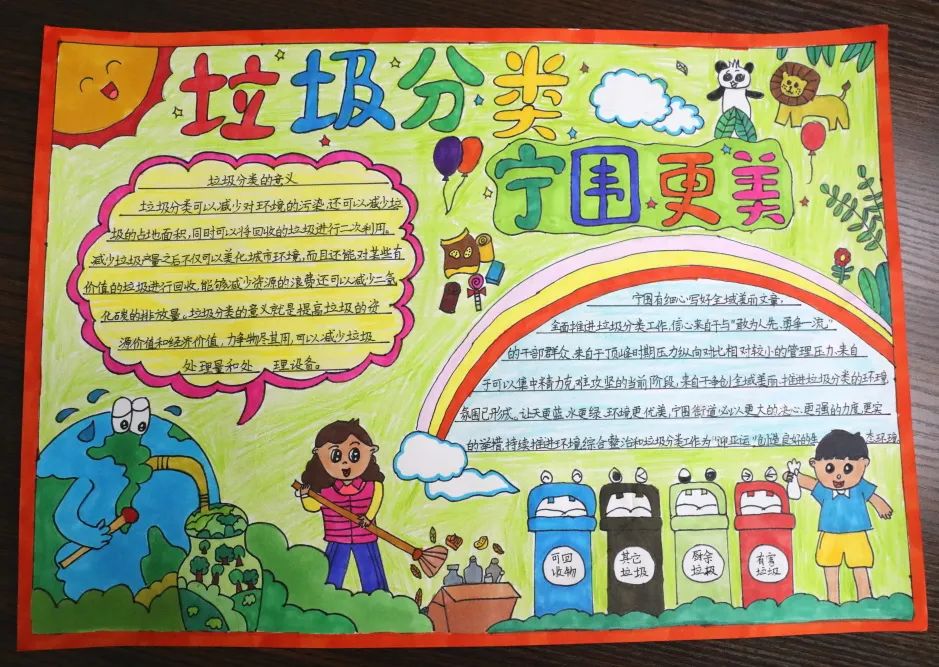 垃圾分类
宁围更美
垃圾分类的意义
垃圾分类可以减少对环境的污染,还可以减少垃
圾的占地面积,同时可以将回收的垃圾进行二次利用。
减少垃圾产量之后不仅可以美化城市环境,而且还能对某些有
价值的垃圾进行回收,能够减少资源的浪费还可以减少二氧
化碳的排放量。垃圾分类的意义就是提高垃圾的资
源价值和经济价值,力争物尽其用,可以减少垃圾
处理量和处 理设备。
宁围有细心,写好全域美丽文章。
全面推进垃圾分类工作,信心来自于与“敢为人先、勇争一流”
的干部群众,来自于顶峰时期压力纵向对比相对较小的管理压力,来自
于可以集中精力克难攻坚的当前阶段,来自于争创全域美丽、推进垃圾分类的环境
氛围已形成。让天更蓝、水更绿、环境更优美,宁围街道必以更大的决心、更强的力度、更实
的举措,持续推进环境综合整治和垃圾分类工作为“迎亚运”创造良好的生
可回
收物
其它
垃圾
厨余
垃圾
有害
垃圾